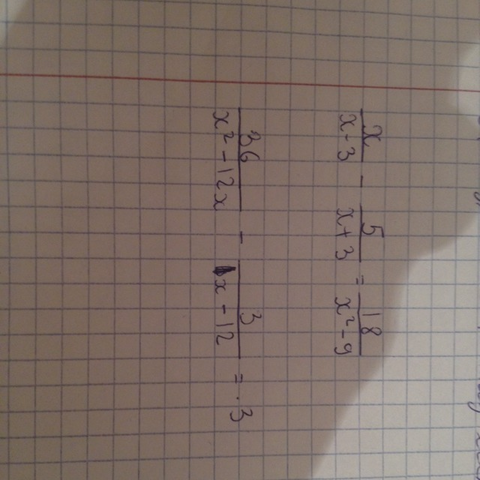 x/(x-3) - 5/(x+3) = 18/(x²-9)
36/(x²-12x) - 3/(x-12) = 3